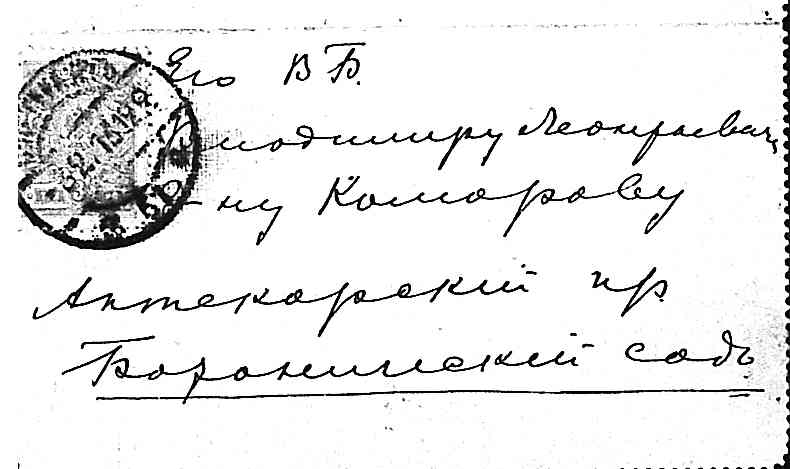 Его В Б.
Владимиру Леонтьевичу
Г-ну Комарову
Аптекарский пр.
Ботанический садъ